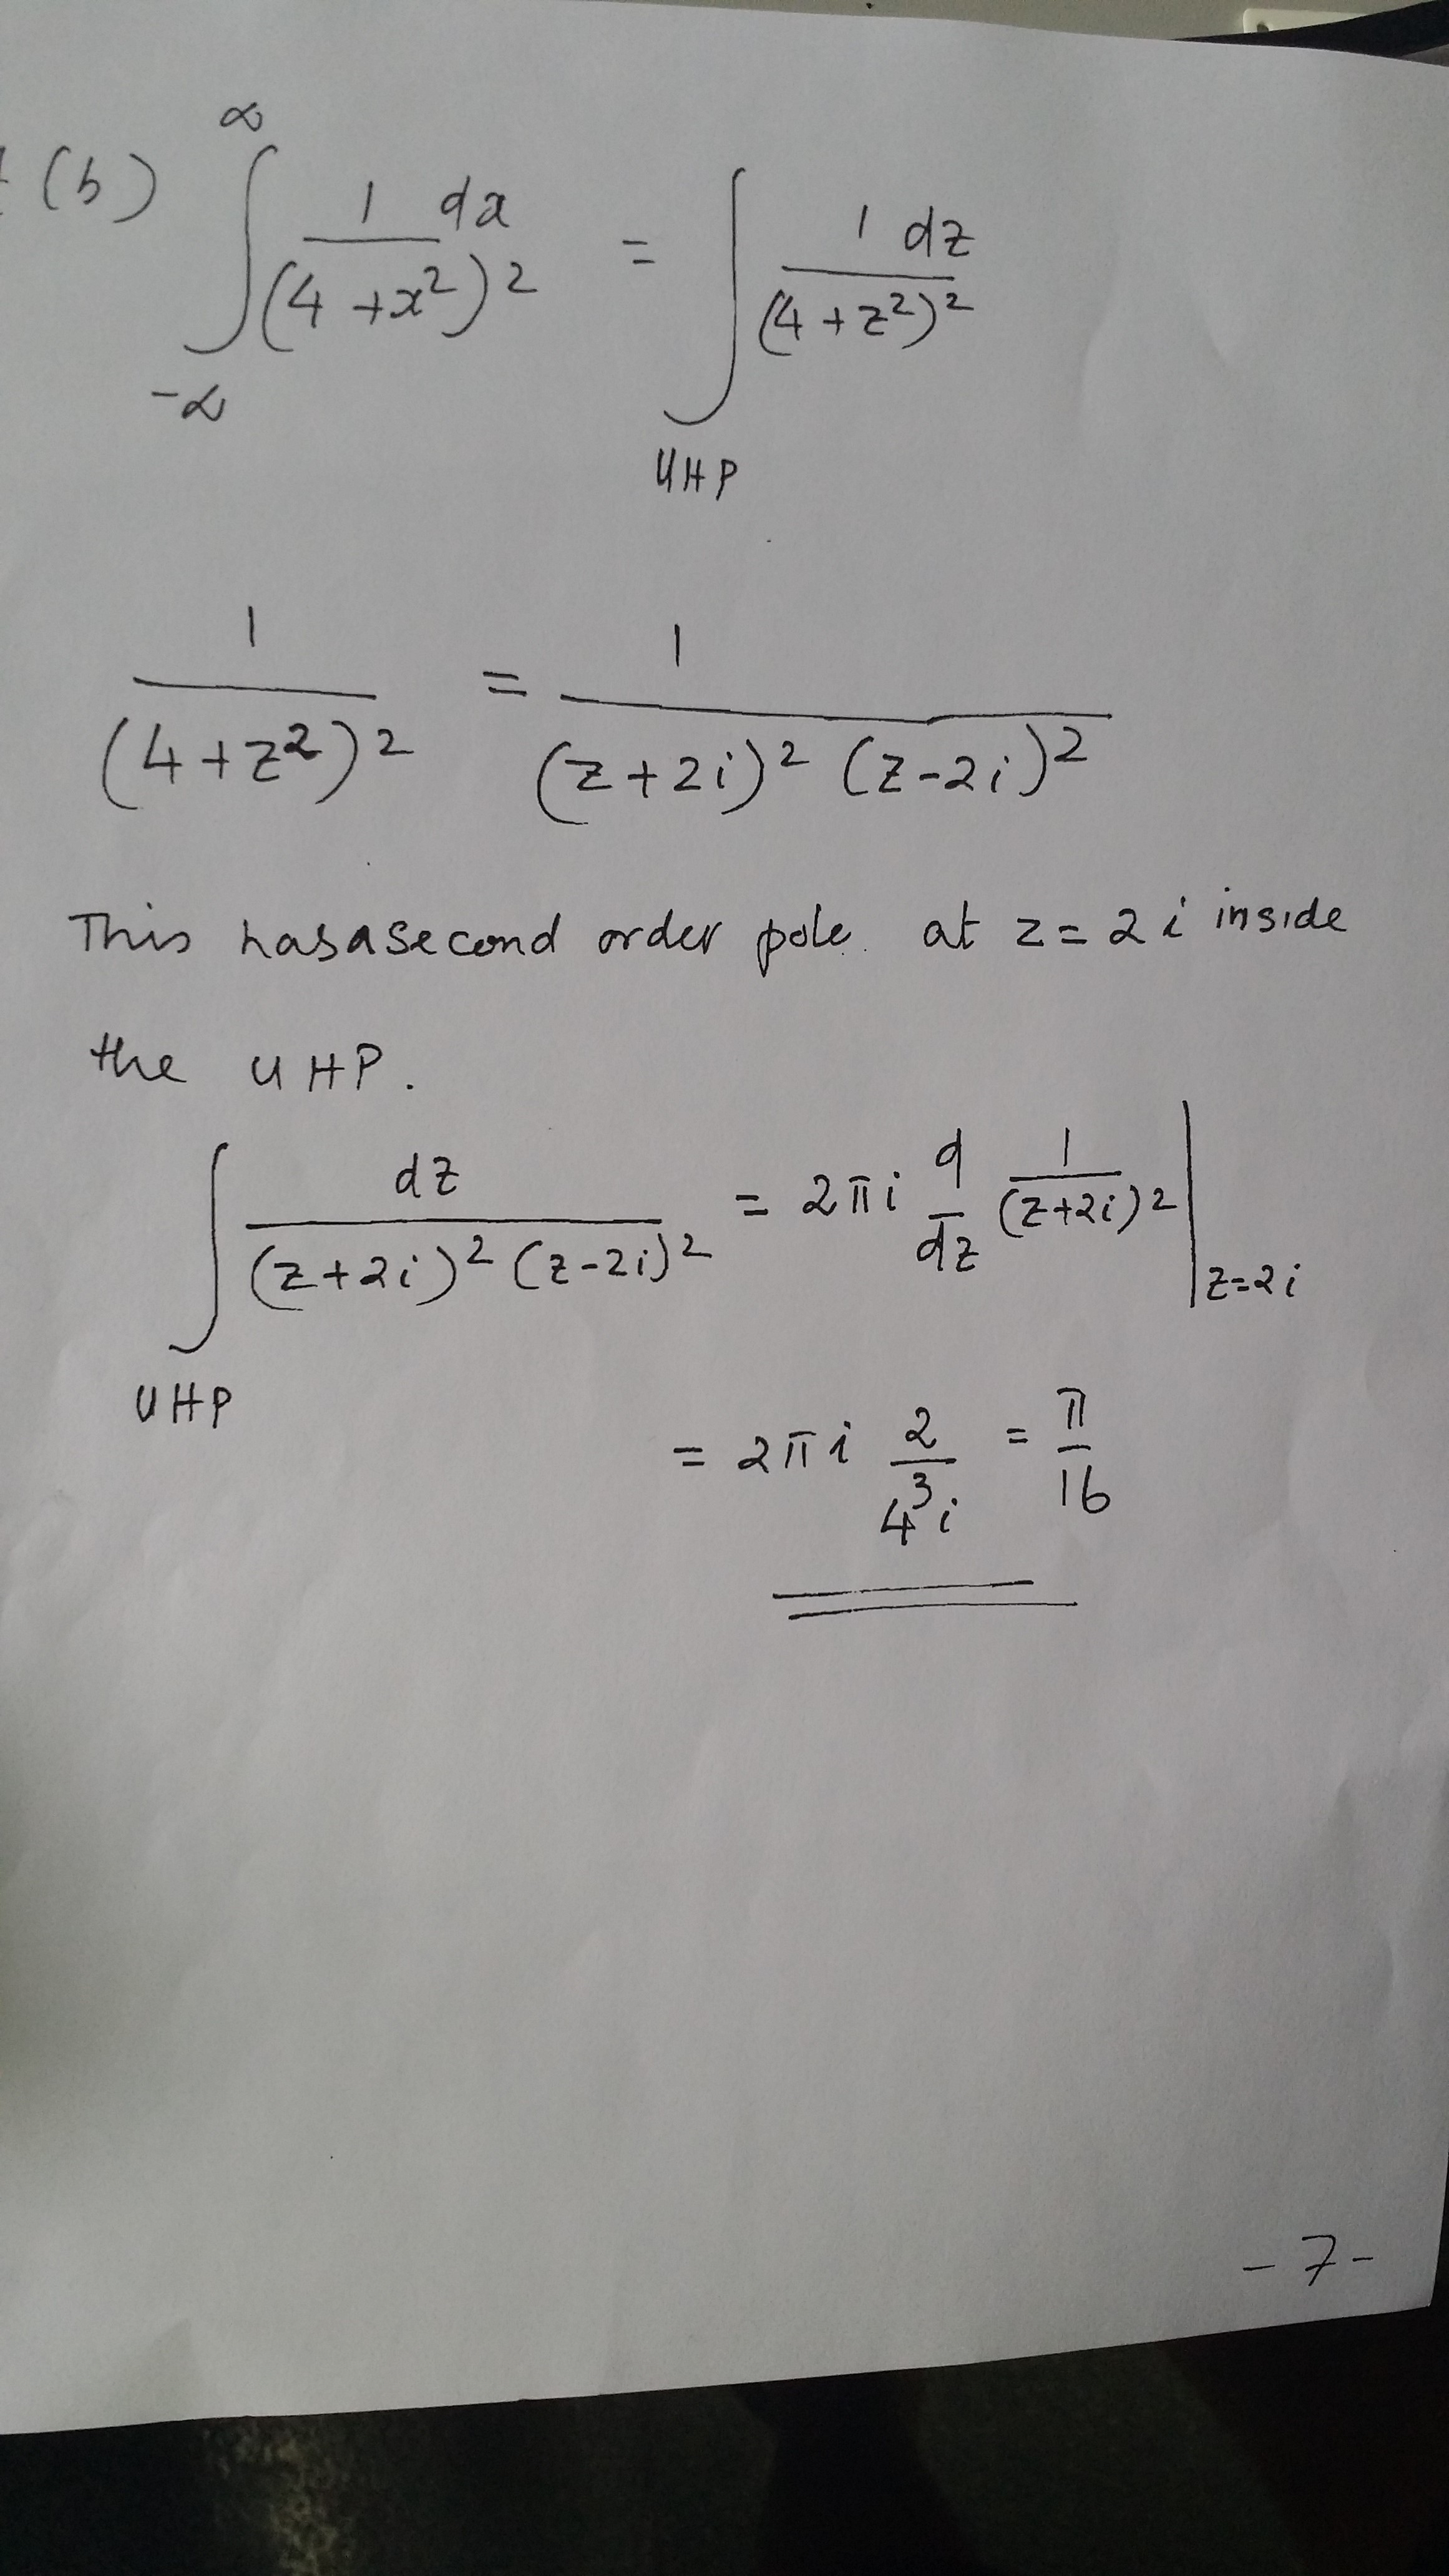 (b) ∫_{-∞}^{∞} 1 dx / (4 + x²)² = ∫_{UHP} 1 dz / (4 + z²)²
1 / (4 + z²)² = 1 / (z + 2i)² (z - 2i)²
This has a second order pole. at z = 2i inside
the UHP.
∫_{UHP} dz / (z + 2i)² (z - 2i)² = 2πi d/dz 1/(z + 2i)² |_{z=2i}
= 2πi 2/4³i = π/16
- 7 -